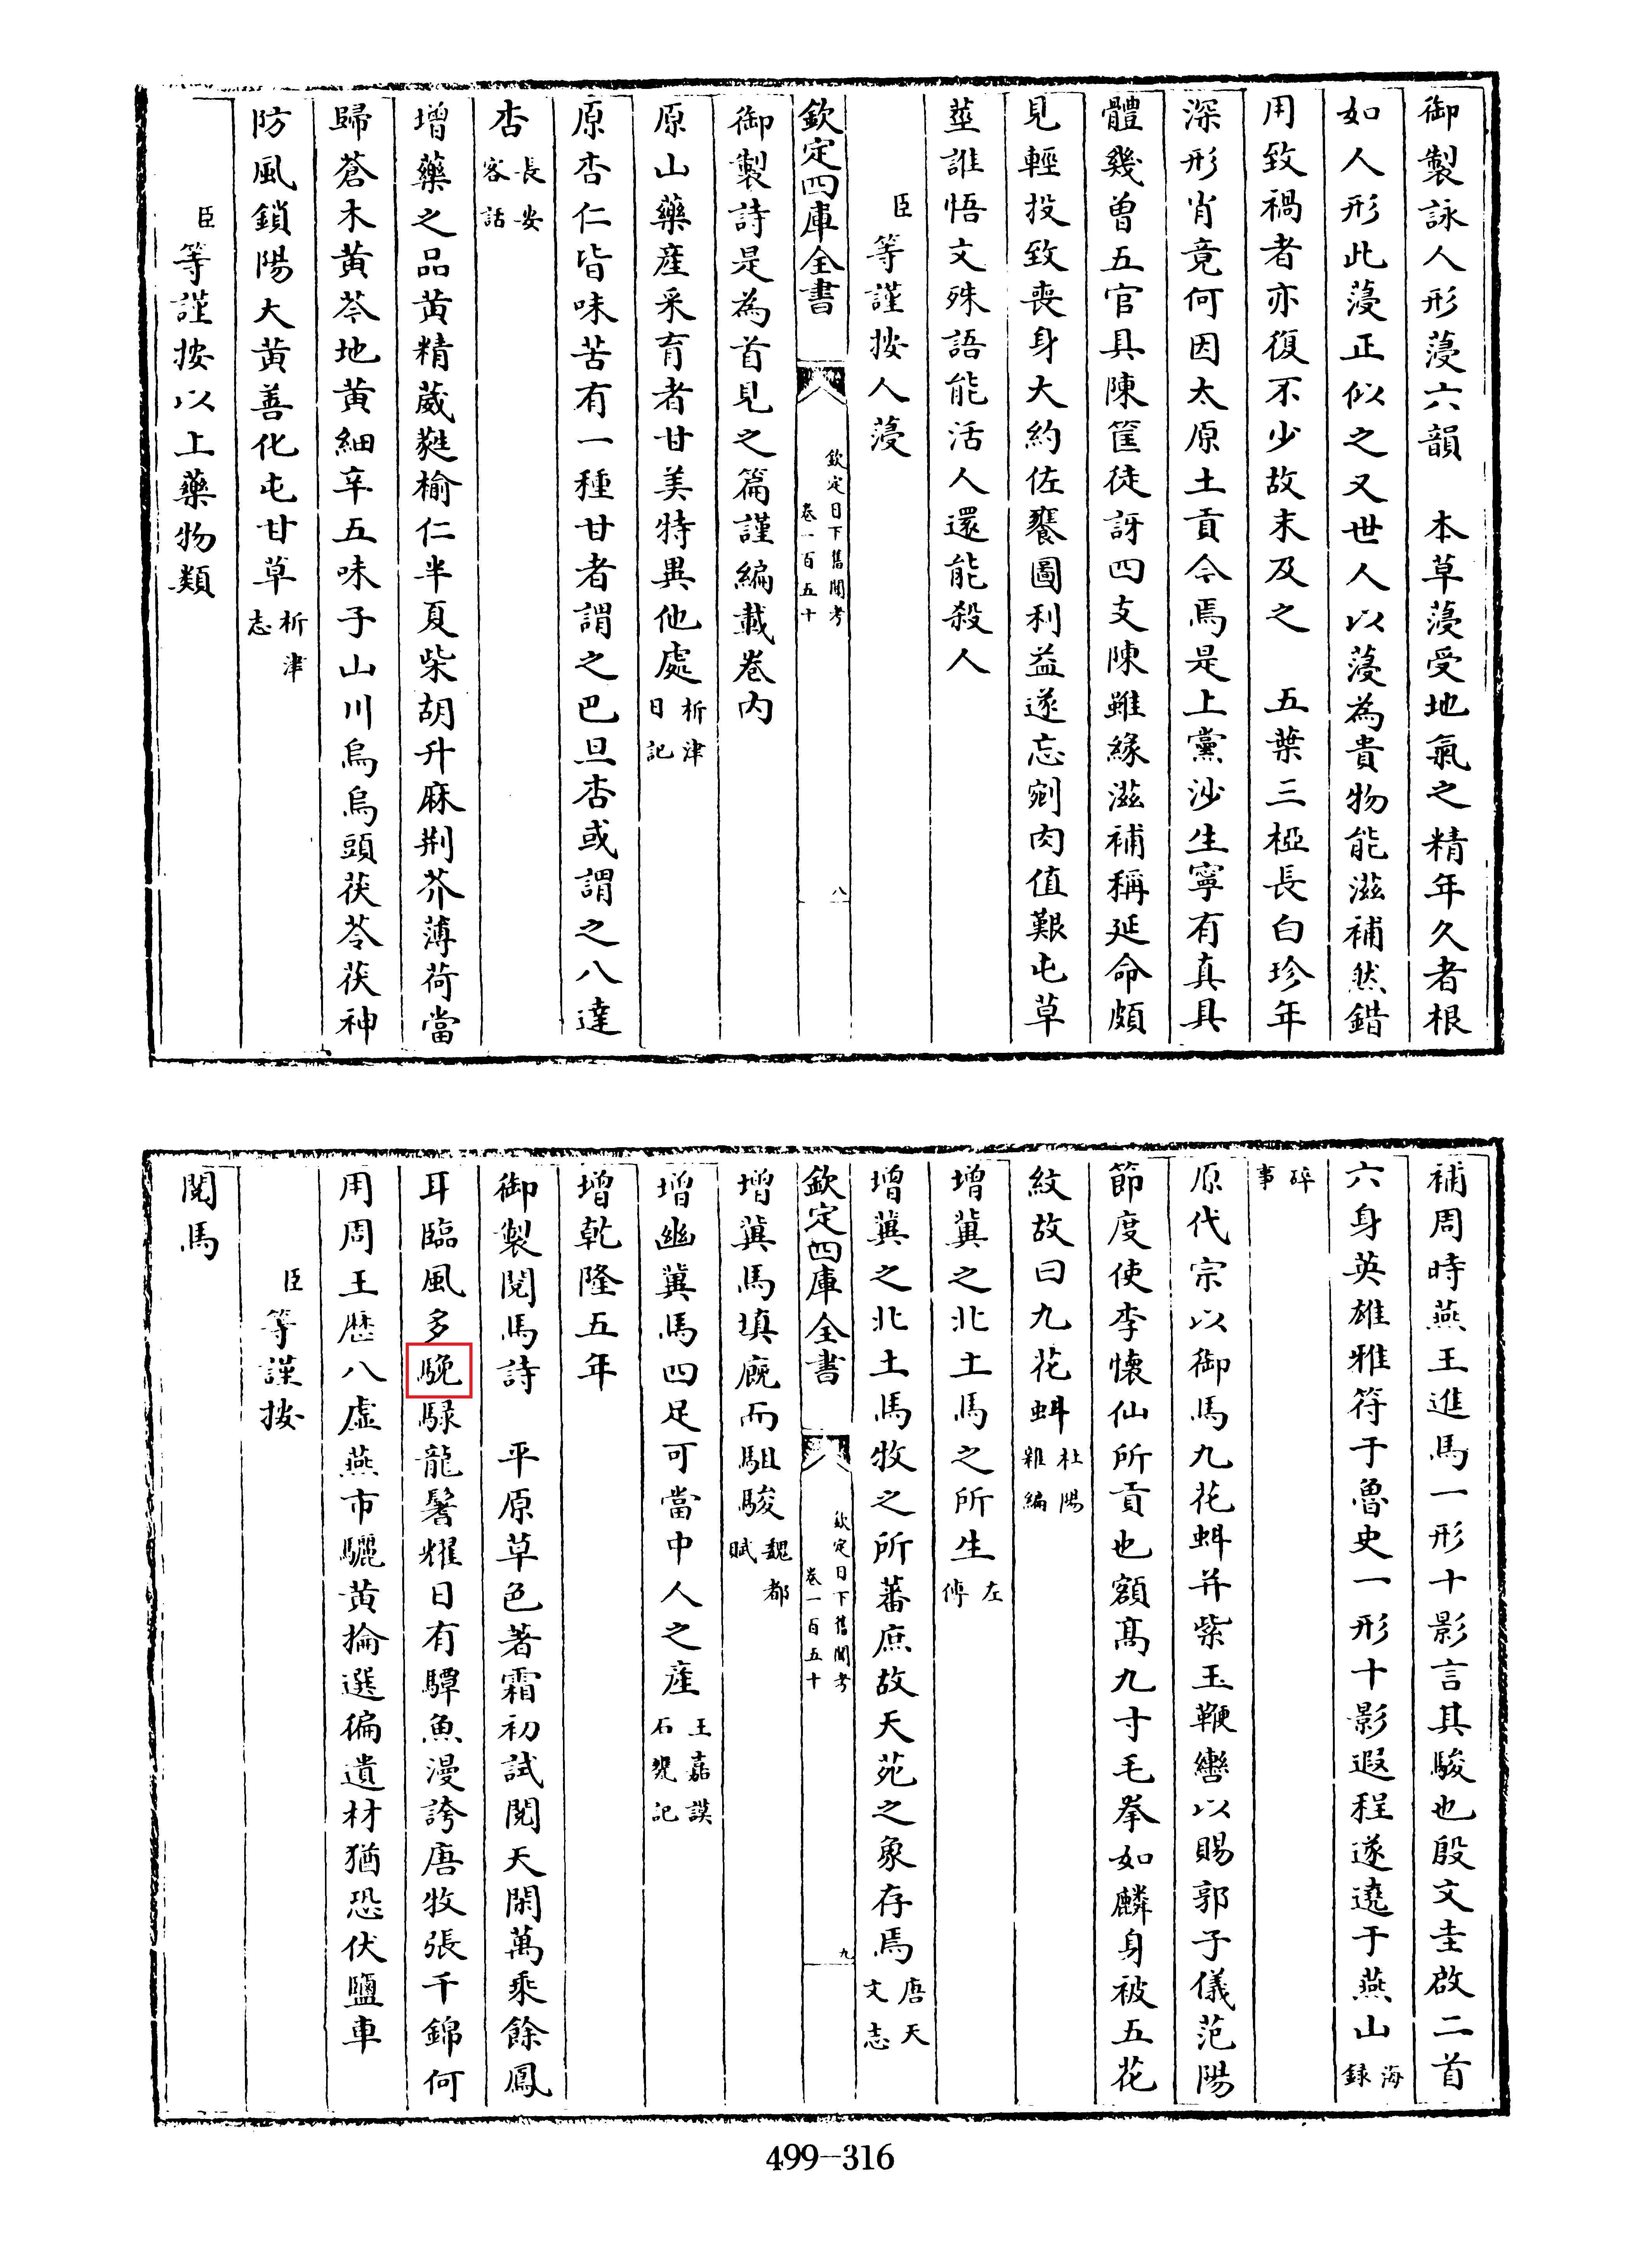 御製詠人形蓡六韻　本草蓡受地氣之精年久者根
如人形此蓡正似之又世人以蓡為貴物能滋補然錯
用致禍者亦復不少故末及之　五葉三椏長白珍年
深形肖竟何因太原土貢今焉是上黨沙生寧有真具
體幾曾五官具陳筐徒訝四支陳雖緣滋補稱延命頗
見輕投致喪身大約佐饔圖利益遂忘剜肉值艱屯草
莖誰悟文殊語能活人還能殺人
臣等謹按人蓡
欽定四庫全書
欽定日下舊聞考
卷一百五十
八
御製詩是為首見之篇謹編載卷内
原山藥産采育者甘美特異他處析津日記
原杏仁皆味苦有一種甘者謂之巴旦杏或謂之八達
杏長安客話
增藥之品黄精葳蕤榆仁半夏柴胡升麻荆芥薄荷當
歸蒼木黄芩地黄細辛五味子山川烏烏頭茯苓茯神
防風鎖陽大黄善化屯甘草析津志
臣等謹按以上藥物類
補周時燕王進馬一形十影言其駿也殷文圭啟二首
六身英雄雅符于魯史一形十影遐程遂遶于燕山海録
碎事
原代宗以御馬九花虯并紫玉鞭轡以賜郭子儀范陽
節度使李懐仙所貢也額髙九寸毛拳如麟身被五花
紋故曰九花虯杜陽雜編
增冀之北土馬之所生左傳
增冀之北土馬牧之所蕃庶故天苑之象存焉唐天文志
欽定四庫全書
欽定日下舊聞考
卷一百五十
九
增冀馬填廐而駔駿魏都賦
增幽冀馬四足可當中人之産王嘉謨石甕記
增乾隆五年
御製閱馬詩　平原草色著霜初試閱天閑萬乘餘鳳
耳臨風多騄龍鬐耀日有驔魚漫誇唐牧張千錦何
用周王歴八虛燕市驪黄掄選徧遺材猶恐伏鹽車
臣等謹按
閱馬
499-316